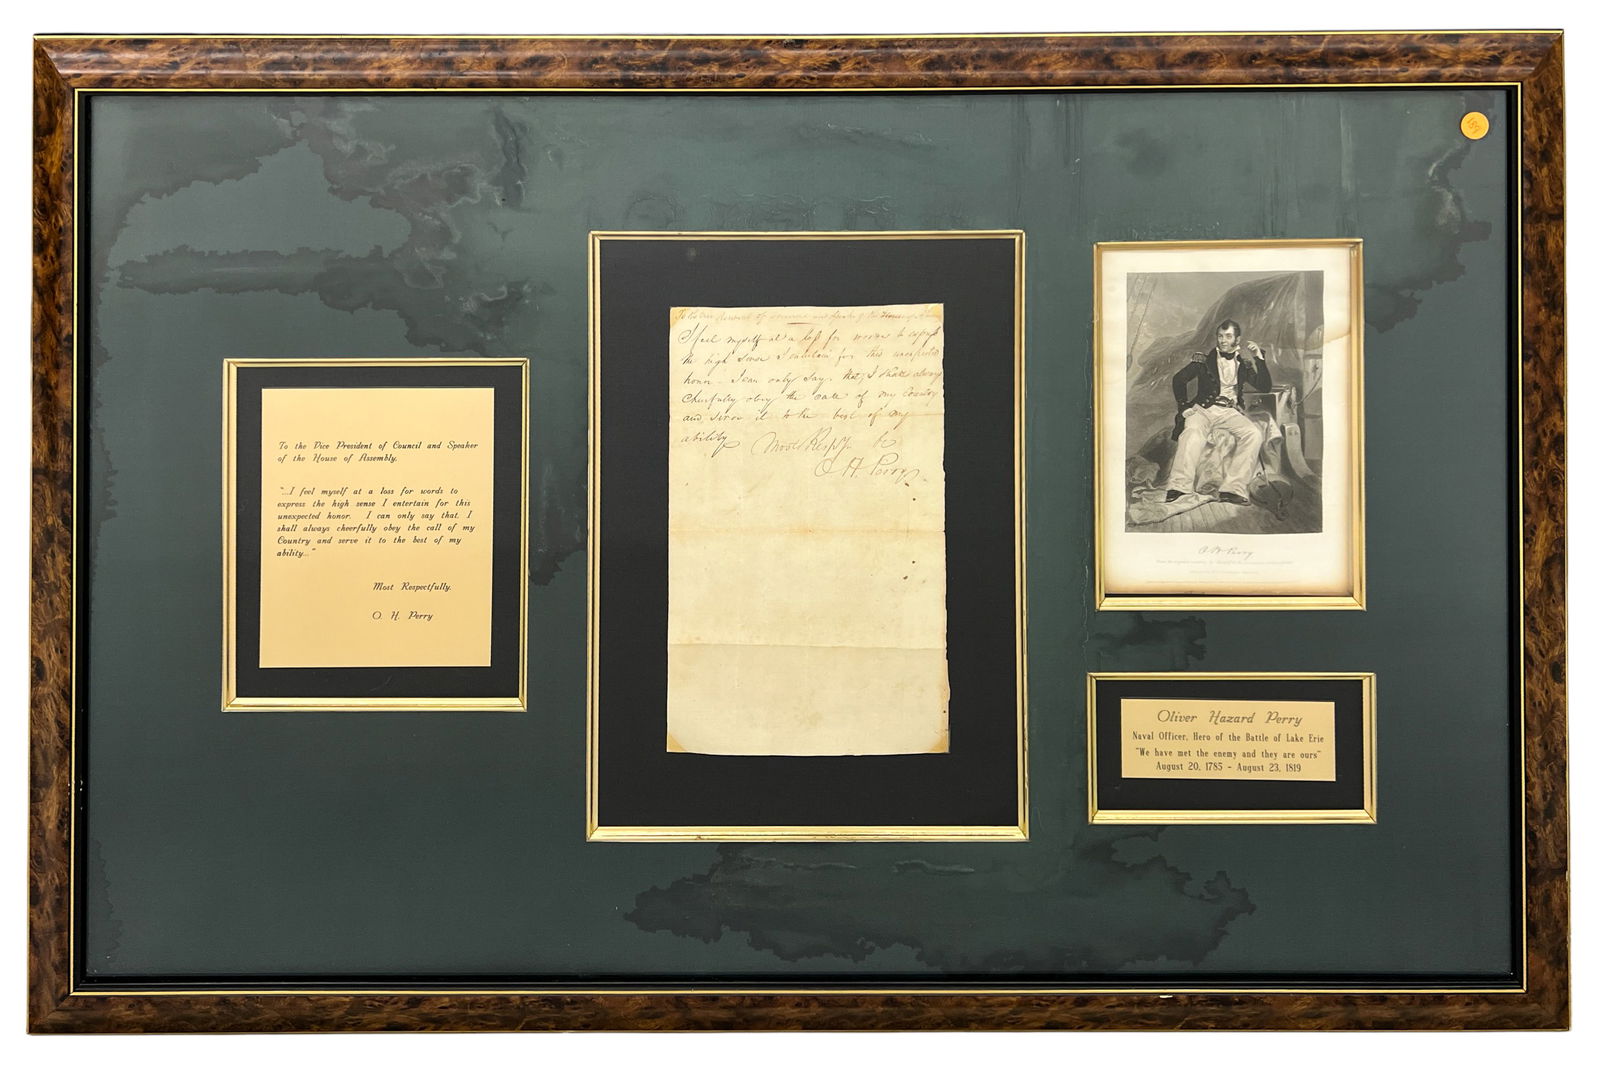 To the Vice President of Council and Speaker
of the House of Assembly.
"...I feel myself at a loss for words to
express the high sense I entertain for this
unexpected honor. I can only say that I
shall always cheerfully obey the call of my
Country and serve it to the best of my
ability..."
Most Respectfully.
O. H. Perry
To the and Speaker of the House of
I feel myself at a loss for words to express
the high sense I entertain for this unexpected
honor - I can only say that I shall always
cheerfully obey the call of my Country
and serve it to the best of my
ability Most Respy
O H Perry
189
O. H. Perry
Oliver Hazard Perry
Naval Officer, Hero of the Battle of Lake Erie
"We have met the enemy and they are ours"
August 20, 1785 - August 23, 1819